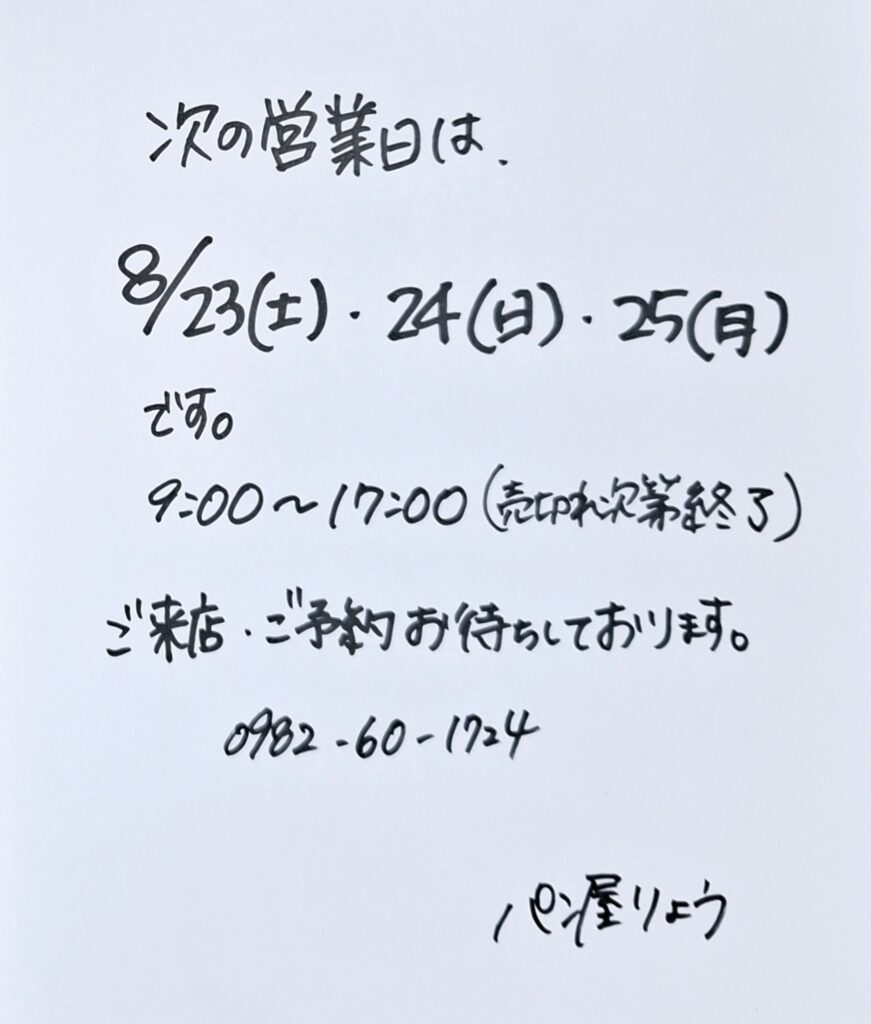 次の営業日は、
8/23(土)・24(日)・25(月)
です。
9:00〜17:00(売切れ次第終了)
ご来店・ご予約お待ちしております。
0982-60-1724
パン屋りょう